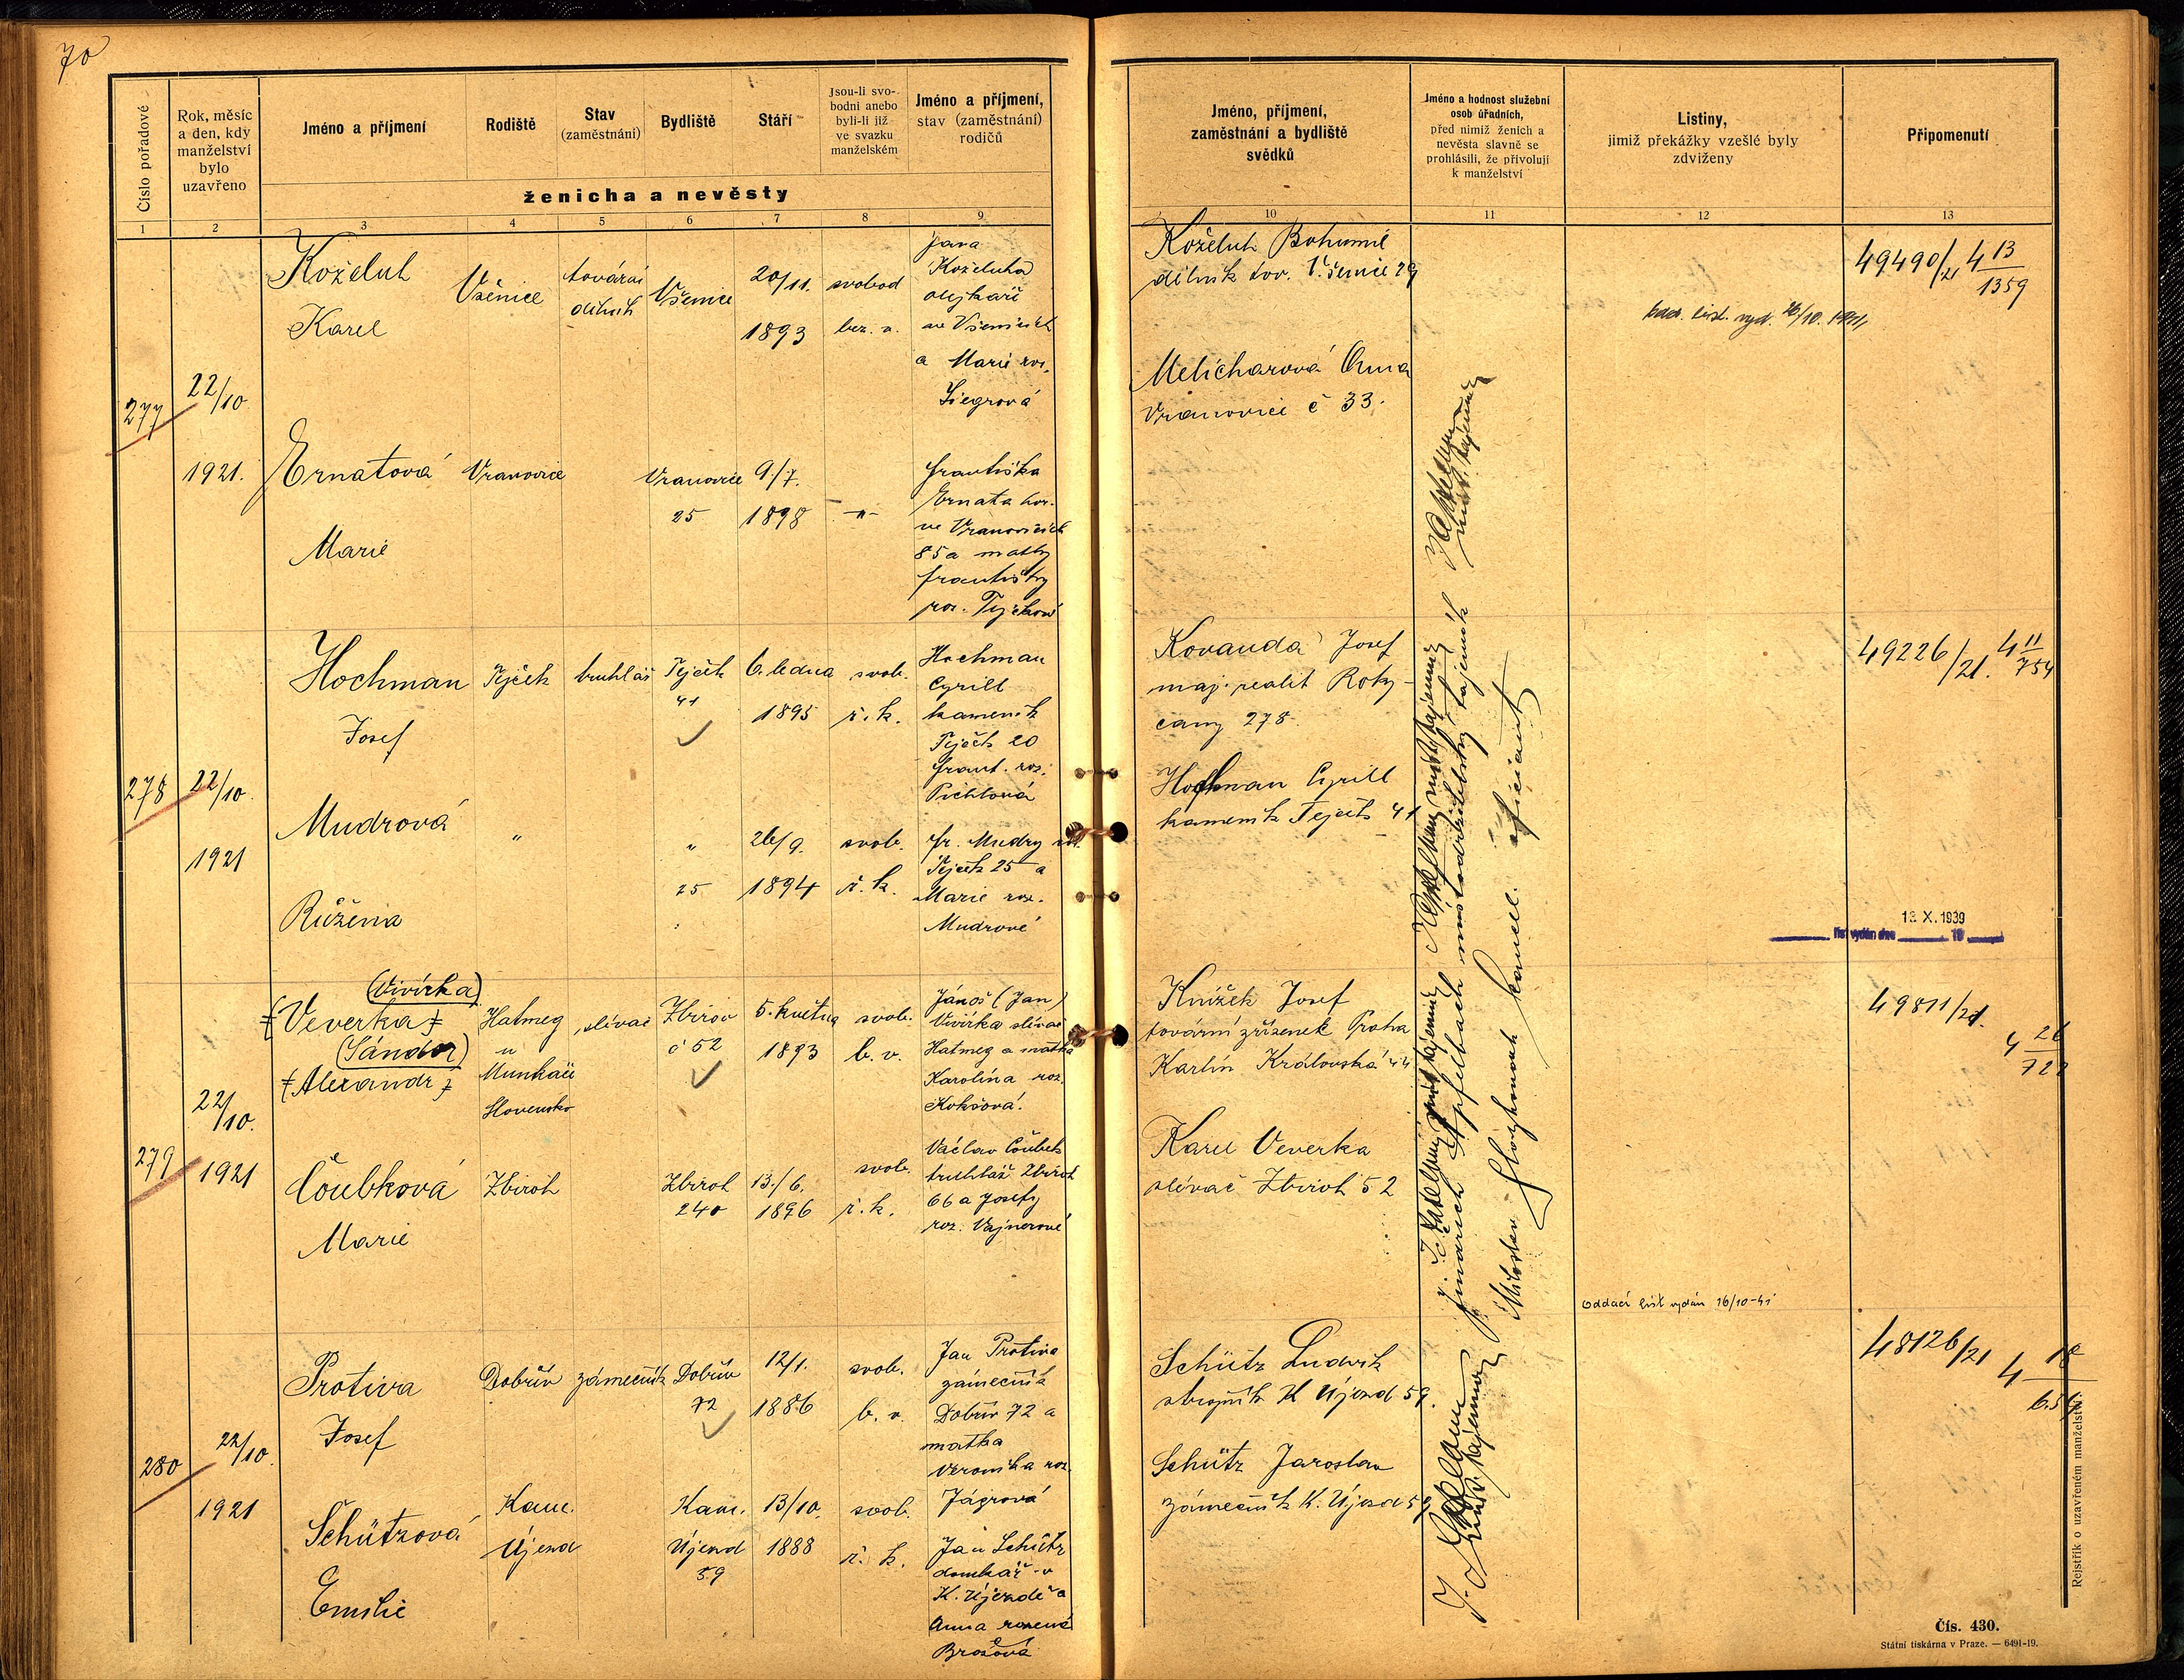 70
Číslo pořadové
Rok, měsíc
a den, kdy
manželství
bylo
uzavřeno
Jméno a příjmení
Rodiště
Stav
(zaměstnání)
Bydliště
Stáří
Jsou-li svo-
bodni anebo
byli-li již
ve svazku
manželském
Jméno a příjmení,
stav (zaměstnání)
rodičů
ženicha a nevěsty
1 2 3 4 5 6 7 8 9
Jméno, příjmení,
zaměstnání a bydliště
svědků
Jméno a hodnost služební
osob úřadních,
před nimiž ženich a
nevěsta slavně se
prohlásili, že přivolují
k manželství
Listiny,
jimiž překážky vzešlé byly
zdviženy
Připomenutí
10 11 12 13
277
22/10
1921.
Koželuh
Karel
Všenice
tovární
dělník
Všenice
20/11.
1893
svobod
bez. v.
Jana
Koželuha
olejkaře
ve Všenicích
a Marie roz.
Ernatová
Marie
Vranovice
Vranovice
25
9/7.
1898
-"-
Františka
Ernata hor.
ve Vranovicích
85 a matky
Františky
roz.
Koželuh Bohumil
dělník tov. Všenice 29
Melicharová Anna
Vranovice č 33.
vyd. 26/10. 1921
49490/21 4 13/1359
278
22/10.
1921
Hochman
Josef
Tejček
truhlář
Tejček
41
6. ledna
1895
svob.
ř. k.
Hochman
Cyrill
kameník
Tejček 20
Frant. roz.
Pichlová
Mudrová
Růžena
"
"
25
26/9.
1894
svob.
ř. k.
Fr. Mudry
Tejček 25 a
Marie roz.
Mudrové
Kovanda Josef
maj. realit Roky-
cany 278.
Hochman Cyrill
kameník Tejček 41
49226/21. 4 11/754
13. X. 1939
list vydán dne 19
279
22/10.
1921
(Vivirka)
(Veverka)
(Sándor)
(Alexandr)
Hatmeg
u
Munkače
Slovensko
slévač
Zbirov
č 52
5. května
1893
svob.
b. v.
Jánoš (Jan)
Vivirka slévač
Hatmeg a matka
Karolina roz.
Koksová.
Čoubková
Marie
Zbiroh
Zbiroh
240
13./6.
1896
svob.
ř. k.
Václav Čoubek
truhlář Zbiroh
66 a Josefy
roz. Vajnerové
Knížek Josef
tovární zřízenek Praha
Karlín Královská 44
Karel Veverka
slévač Zbiroh 52
Oddací list vydán 16/10-41
49811/21.
280
22/10.
1921
Protiva
Josef
Dobřív
zámečník
Dobřív
72
12/1.
1886
svob.
b. v.
Jan Protiva
zámečník
Dobřív 72 a
matka
Veronika roz.
Jágrová
Schützová
Emilie
Kam.
Újezd
Kam.
Újezd
59
13/10.
1888
svob.
ř. k.
Jan Schütz
domkář v
K. Újezdě a
Anna rozená
Brožová
Schütz Ludvík
strojník K Újezd 59.
Schütz Jaroslav
zámečník K. Újezd 59
48126/21
Rejstřík o uzavřeném manželství.
Čís. 430.
Státní tiskárna v Praze. — 6491-19.